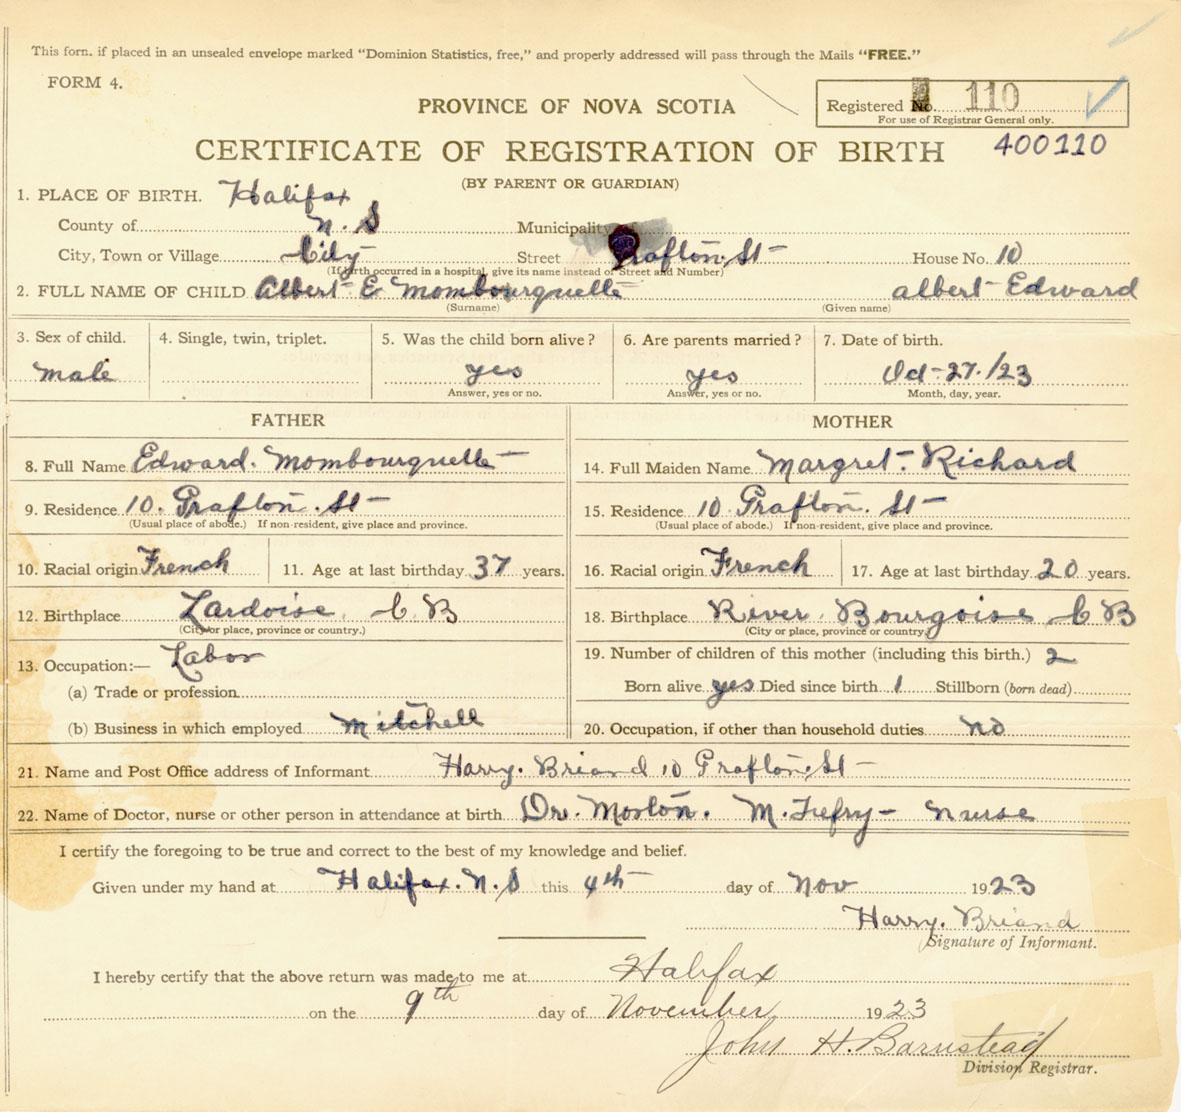 This form. if placed in an unsealed envelope marked "Dominion Statistics, free," and properly addressed will pass through the Mails "FREE."
FORM 4.
Registered No. 110
For use of Registrar General only.
PROVINCE OF NOVA SCOTIA
CERTIFICATE OF REGISTRATION OF BIRTH 400110
(BY PARENT OR GUARDIAN)
1. PLACE OF BIRTH. Halifax
County of N. S Municipality of
City, Town or Village City Street Grafton St House No. 10
(If birth occurred in a hospital, give its name instead of Street and Number)
2. FULL NAME OF CHILD Albert E Mombourquette albert Edward
(Surname) (Given name)
3. Sex of child. 4. Single, twin, triplet. 5. Was the child born alive? 6. Are parents married? 7. Date of birth.
male yes yes Oct-27./23
Answer, yes or no. Answer, yes or no. Month, day, year.
FATHER MOTHER
8. Full Name Edward. Mombourquette 14. Full Maiden Name Margret. Richard
9. Residence 10. Grafton. St 15. Residence 10 Grafton. St
(Usual place of abode.) If non-resident, give place and province. (Usual place of abode.) If non-resident, give place and province.
10. Racial origin French 11. Age at last birthday 37 years. 16. Racial origin French 17. Age at last birthday 20 years.
12. Birthplace Lardoise. C. B 18. Birthplace River. Bourgoise C B
(City or place, province or country.) (City or place, province or country.)
13. Occupation:— Labor 19. Number of children of this mother (including this birth.) 2
(a) Trade or profession Born alive yes Died since birth 1 Stillborn (born dead)
(b) Business in which employed Mitchell 20. Occupation, if other than household duties no
21. Name and Post Office address of Informant Harry. Briand 10 Grafton. St
22. Name of Doctor, nurse or other person in attendance at birth Dr. Morton. M. Trefry- Nurse
I certify the foregoing to be true and correct to the best of my knowledge and belief.
Given under my hand at Halifax. N. S this 4th day of Nov 1923
Harry. Briand
Signature of Informant.
I hereby certify that the above return was made to me at Halifax
on the 9th day of November 1923
John H. Barnstead
Division Registrar.